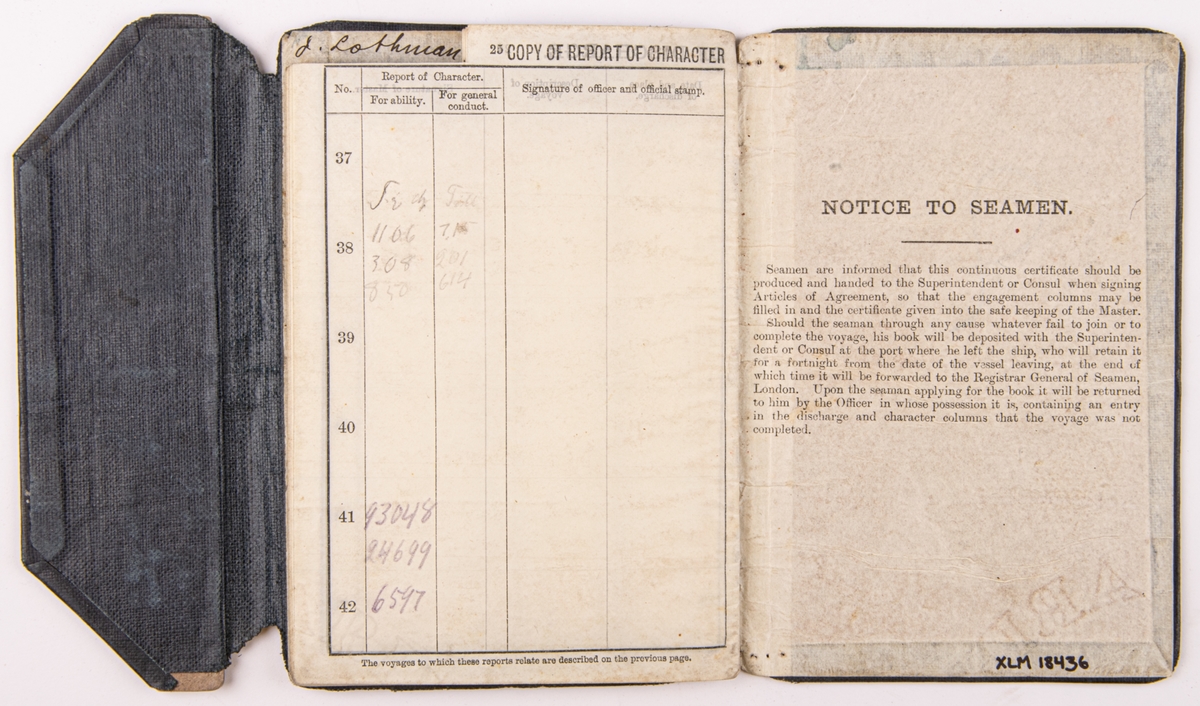 J. Lothman
25 COPY OF REPORT OF CHARACTER
No.
Report of Character.
For ability.
For general conduct.
Signature of officer and official stamp.
37
38
1106
308
201
850
614
39
40
41 93048
24699
42 6597
The voyages to which these reports relate are described on the previous page.
NOTICE TO SEAMEN.
Seamen are informed that this continuous certificate should be
produced and handed to the Superintendent or Consul when signing
Articles of Agreement, so that the engagement columns may be
filled in and the certificate given into the safe keeping of the Master.
Should the seaman through any cause whatever fail to join or to
complete the voyage, his book will be deposited with the Superinten-
dent or Consul at the port where he left the ship, who will retain it
for a fortnight from the date of the vessel leaving, at the end of
which time it will be forwarded to the Registrar General of Seamen,
London. Upon the seaman applying for the book it will be returned
to him by the Officer in whose possession it is, containing an entry
in the discharge and character columns that the voyage was not
completed.
XLM 18436